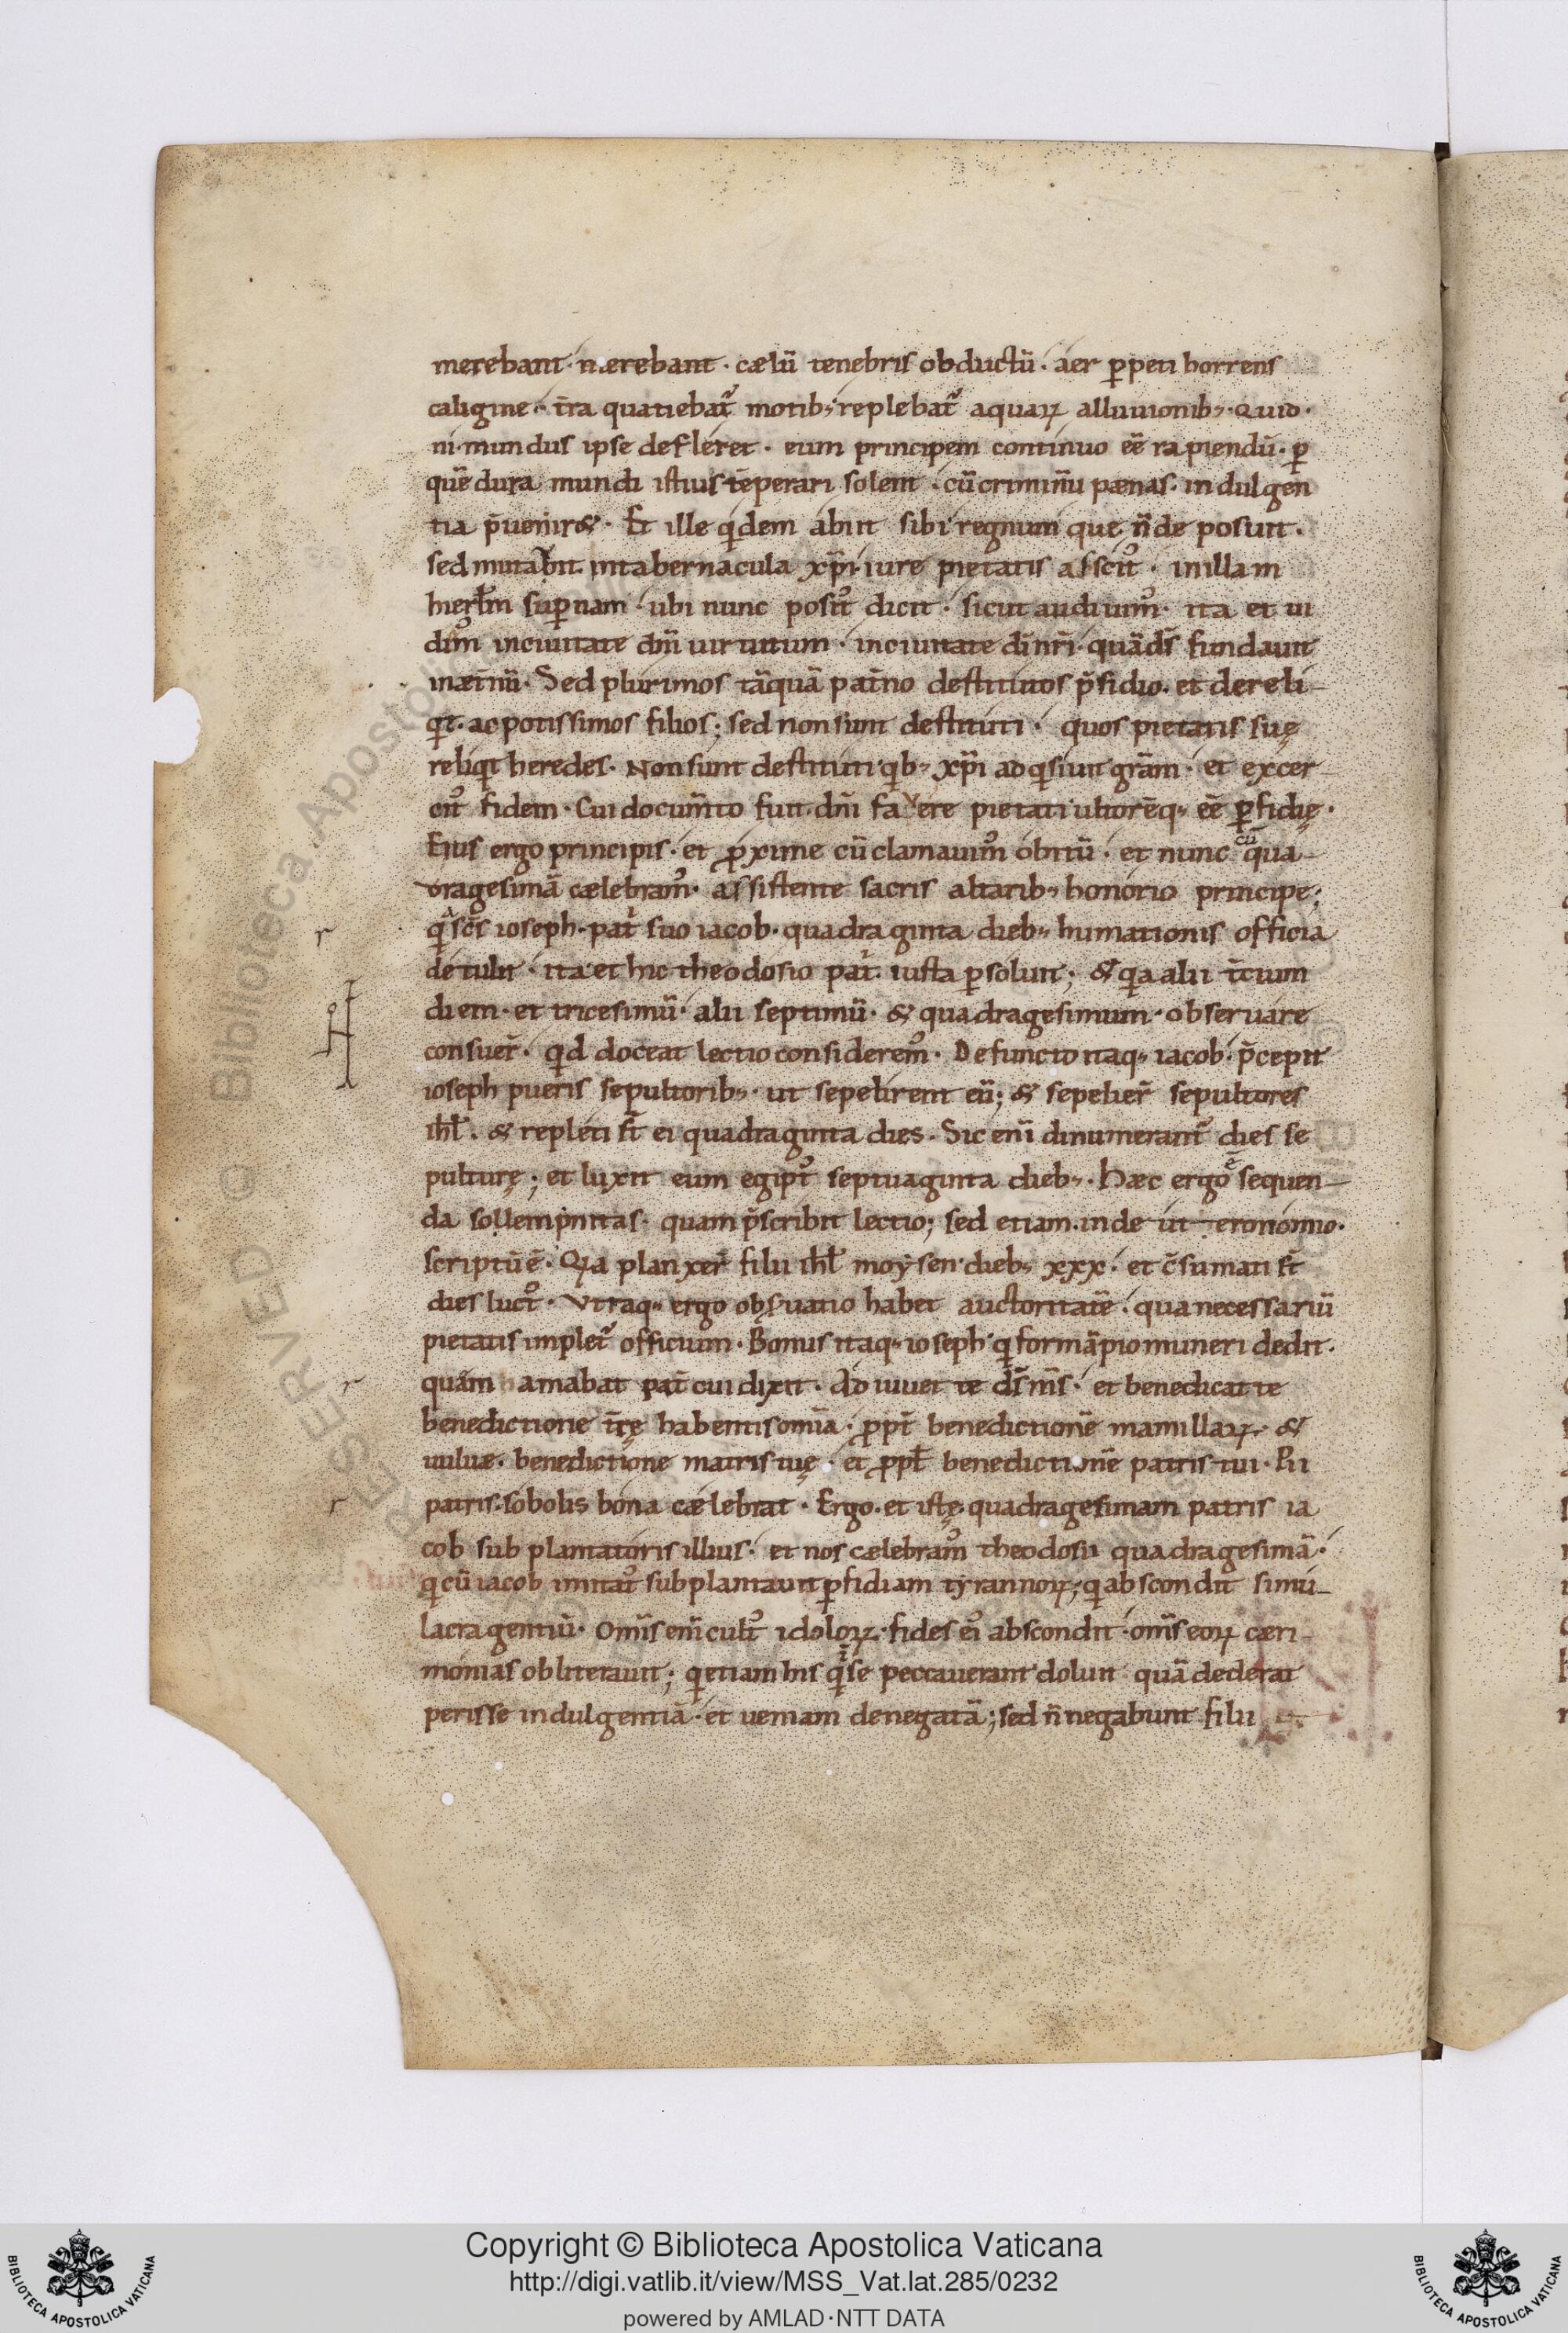 merebant · nærebant · cælū tenebris obductū · aer ꝑpeti horrens
caligine · t̄ra quatiebat᷒ motib; replebat᷒ aquaꝝ alluuionib; · Quid ·
ni · mundus ipse defleret · eum principem continuo eē rapiendū · ꝑ
quē dura mundi istius tēperari solent · cū criminū pænas · indulgen
tia p̄uenir& · Et ille q̇dem abiit sibi regnum que n̄ deposuit ·
sed mutabit intabernacula xp̄i · iure pietatis asscit᷒ · inillam
hierł̄m suꝑnam · ubi nunc posit᷒ dicit · sicut audiuim᷒ · ita et ui
dim᷒ inciuitate dn̄i uirtutum · inciuitate dī nr̄i · quā dS̄ fundauit
inæt̄nū · Sed plurimos tāquā pat̄no destitutos p̄sidio · et dereli-
qt · ac potissimos filios; sed non sunt destituti · quos pietatis suę
reliq̇t heredes · Non sunt destituti q̇b; xp̄i adq̇siuit gr̄am · et excer
cit᷒ fidem · Cui docum̄to fuit dn̄i favere pietati ultorēq; eē ꝑfidię ·
Eius ergo principis · et ꝓxime cū clamauim᷒ obitū · et nunc cū qua-
dragesimā cælebram᷒ · assistente sacris altarib; honorio principe;
q̇ sc̄s ioseph · pat̄ suo iacob · quadraginta dieb; humationis officia
detulit · ita et hic theodosio pat̄ iusta ꝑsoluit; & q̇a alii t̄cium
diem · et tricesimū · alii septimū · & quadragesimum · obseruare
consuer̄ · q̇d doceat lectio considerem᷒ · Defuncto itaq; iacob · p̄cepit
ioseph pueris sepultorib; · ut sepelirent eū; & sepelier̄ sepultores
ihł̄ · & repleti st̄ ei quadraginta dies · Sic enī dinumerant᷒ dies se
pulturę; et luxit eum egipt᷒ septuaginta dieb; · Hæc ergo ē sequen-
da sollempnitas · quam p̄scribit lectio; sed etiam · in deuteronomio ·
scriptū ē · Qa planxer̄ filii ihł̄ moysen · dieb; xxx · et c̄sumati st̄
dies luct᷒ · Vtraq; ergo obs̄uatio habet auctoritatē · qua necessariū
pietatis implet᷒ officium · Bonus itaq; ioseph · q̇ formā pio muneri dedit ·
quam amabat pat̄ cui dixit · Adiuuet te dS̄ mS̄ · et benedicat te
benedictione t̄rę habentis omīa · ꝓpt̄ benedictionē mamillaꝝ · &
uuluæ · benedictione matris tuę · et ꝓpt̄ benedictionē patris tui · Pii
patris · sobolis bona cælebrat · Ergo · et istę · quadragesimam patris ia
cob sub plantatoris illius · et nos cælebram᷒ theodosii quadragesimā ·
q̇ cū iacob imitat᷒ subplantauit ꝑfidiam tyrannoꝝ; q̇ abscondit simu-
lacra gentiū · Omīs enī cult᷒ idoloꝝ · fides ei᷒ abscondit · om̄s eoꝝ cæri-
monias obliterauit; q̇ etiam his q̇ i se peccauerant doluit quā dederat
perisse indulgentiā · et ueniam denegatā; sed n̄ negabunt filii
r
r
r
Copyright © Biblioteca Apostolica Vaticana
http://digi.vatlib.it/view/MSS_Vat.lat.285/0232
powered by AMLAD·NTT DATA
BIBLIOTECA APOSTOLICA VATICANA
BIBLIOTECA APOSTOLICA VATICANA